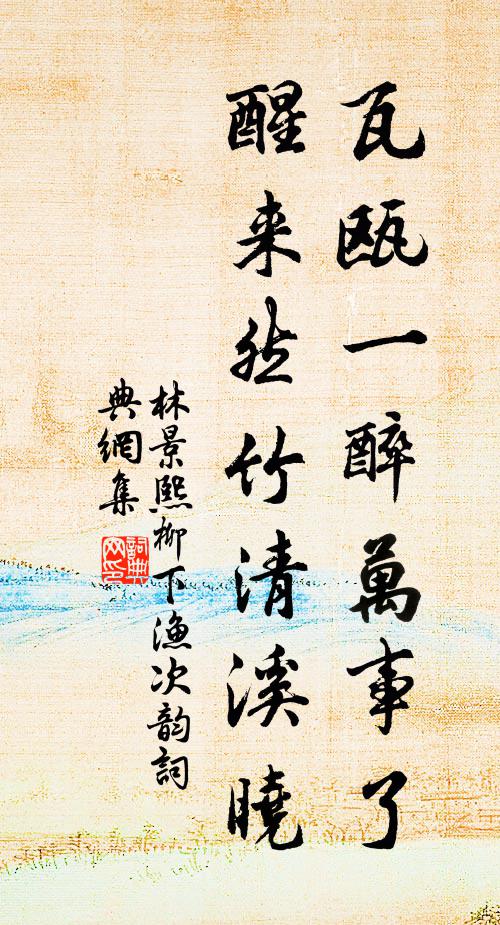 瓦瓯一醉萬事了
醒来然竹清溪曉
林景熙柳下漁次韵詞
典網集
詞典
网印